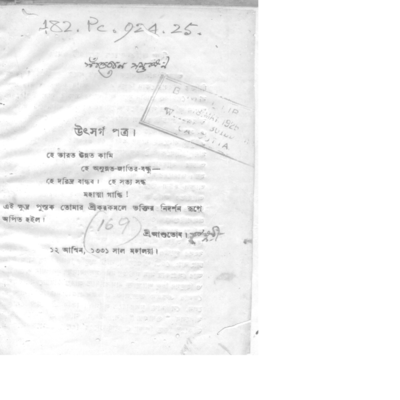 182.Pc.924.25.
উৎসর্গ পত্র।
হে ভারত উন্নত কামি
হে অনুন্নত-জাতির-বন্ধু—
হে দরিদ্র বান্ধব! হে সত্য সন্ধ
মহাত্মা গান্ধি!
এই ক্ষুদ্র পুস্তক তোমার শ্রীকরকমলে ভক্তির নিদর্শন রূপে
অর্পিত হইল।
(169)
শ্রীআশুতোষ।
১২ আশ্বিন, ১৩৩১ সাল মহালয়া।